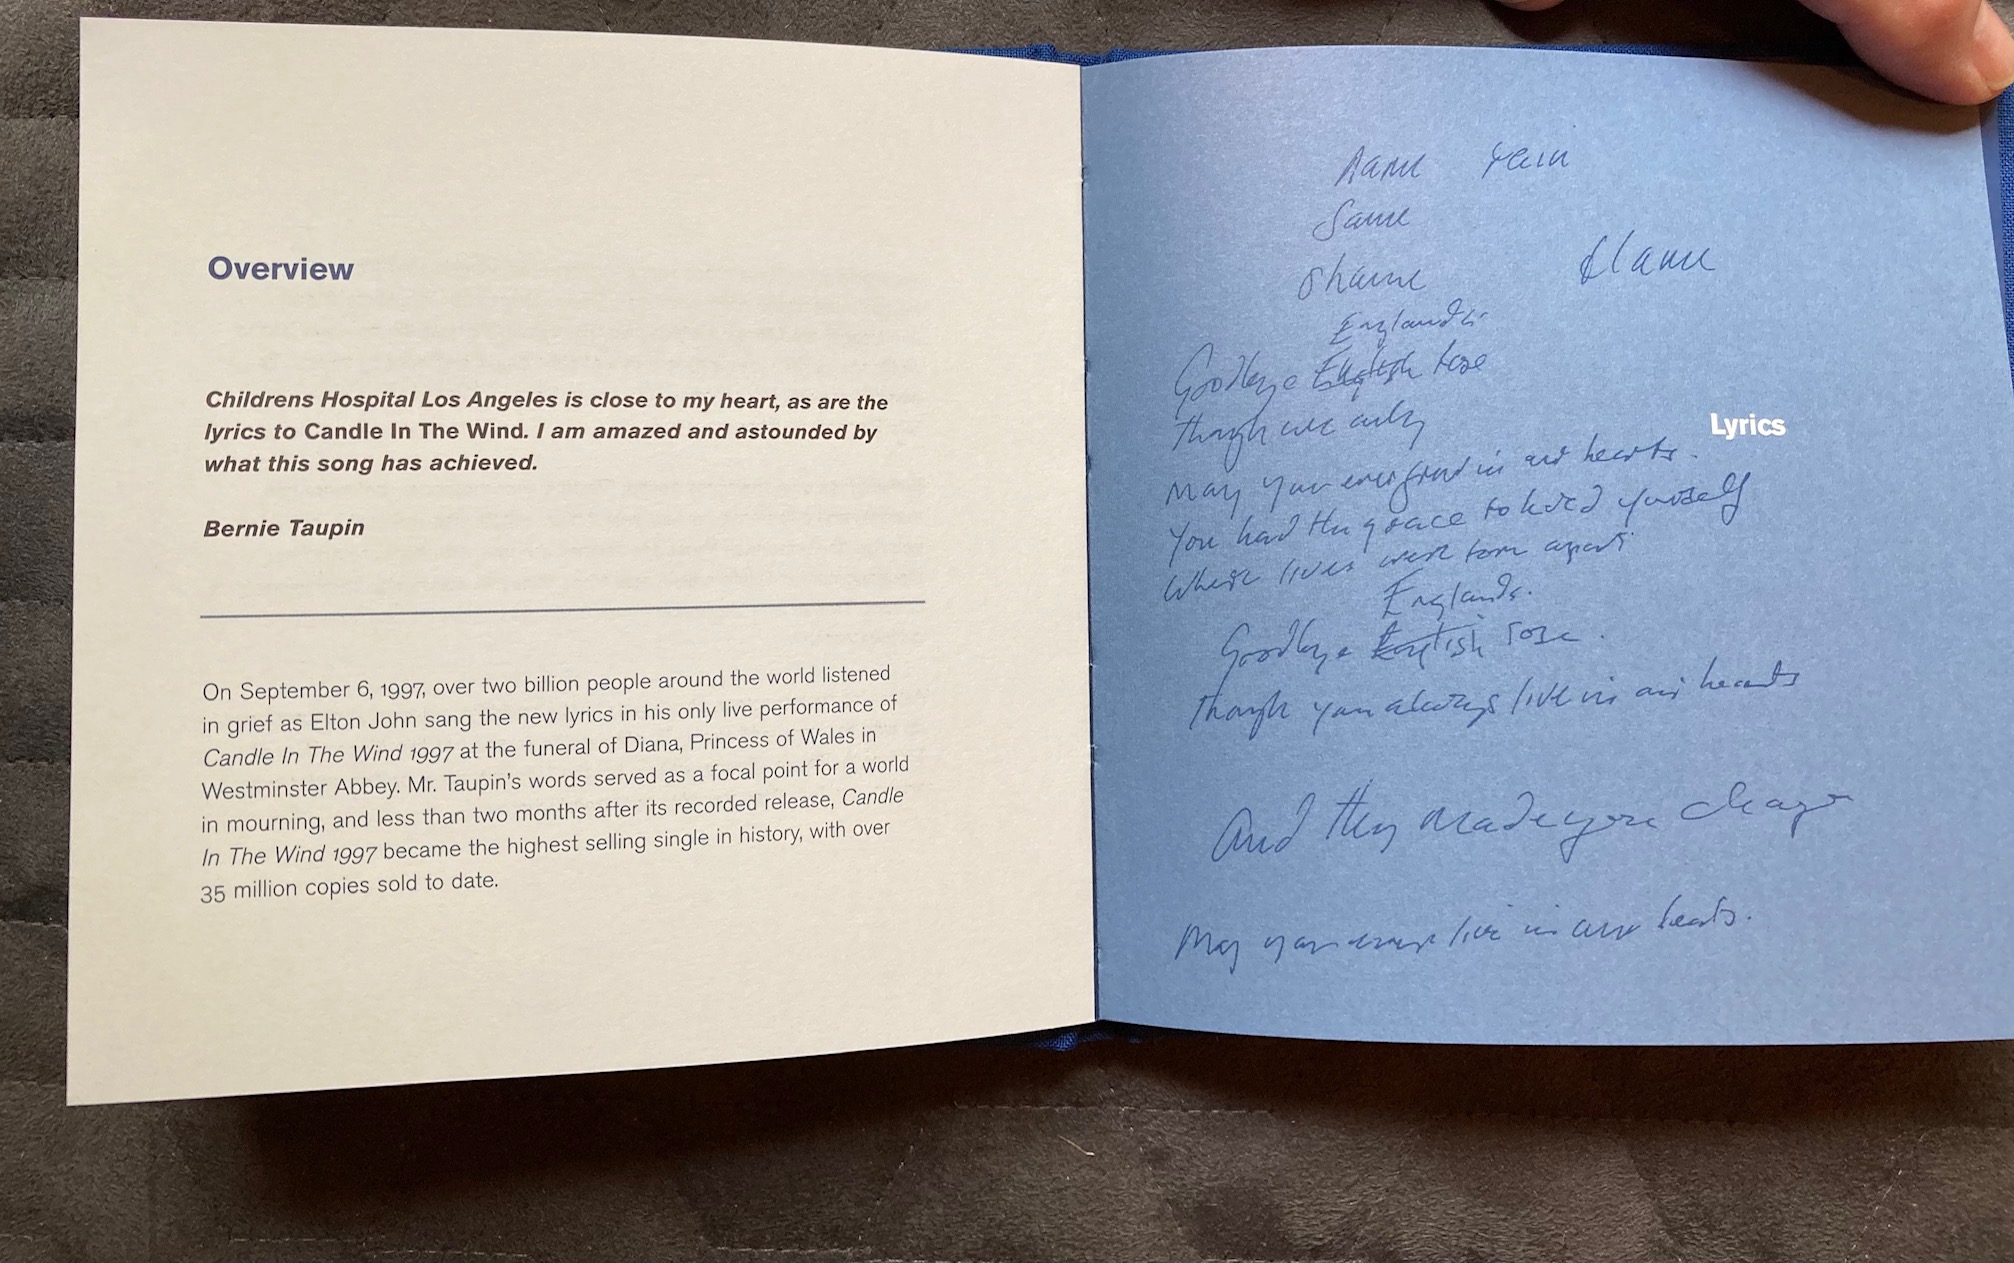 Overview
Childrens Hospital Los Angeles is close to my heart, as are the
lyrics to Candle In The Wind. I am amazed and astounded by
what this song has achieved.
Bernie Taupin
On September 6, 1997, over two billion people around the world listened
in grief as Elton John sang the new lyrics in his only live performance of
Candle In The Wind 1997 at the funeral of Diana, Princess of Wales in
Westminster Abbey. Mr. Taupin's words served as a focal point for a world
in mourning, and less than two months after its recorded release, Candle
In The Wind 1997 became the highest selling single in history, with over
35 million copies sold to date.
name
Same
Shame flame
Englands
Goodbye English rose
though we only
Lyrics
May you ever in our hearts.
You had the grace to hold yourself
Where lives were torn apart
Englands.
Goodbye English rose.
though you always live in our hearts
And they made you change
May you ever live in our hearts.